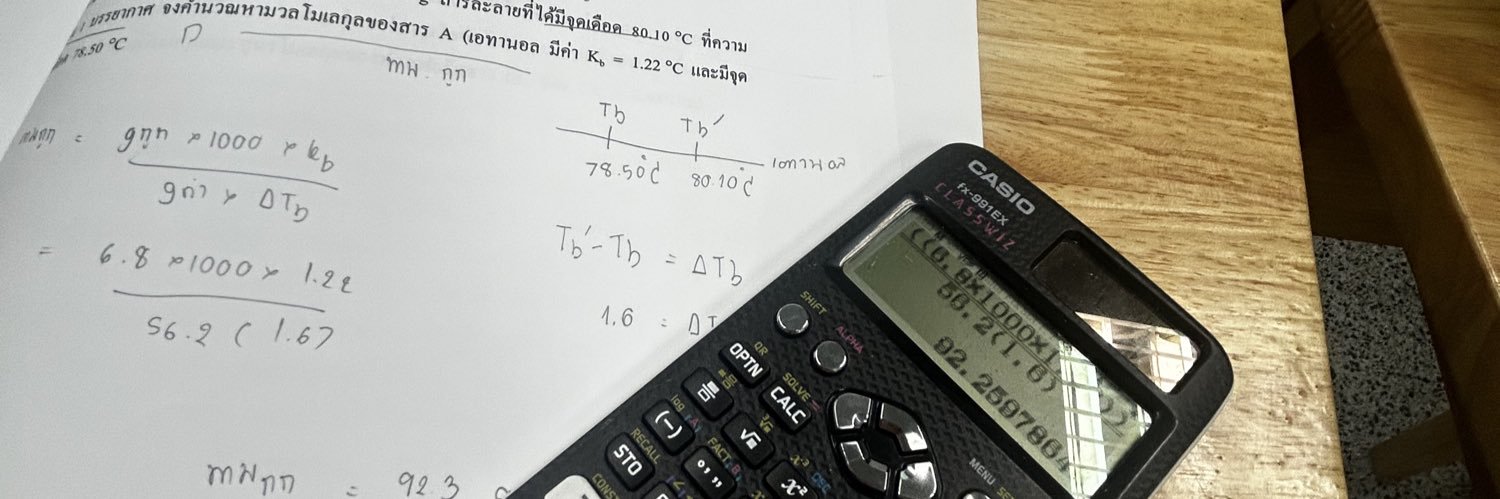 สารละลายที่ได้มีจุดเดือด 80.10 °C ที่ความ
บรรยากาศ จงคำนวณหามวลโมเลกุลของสาร A (เอทานอล มีค่า K_b = 1.22 °C และมีจุด
78.50 °C
มม. ถูก
Tb Tb′
78.50°C 80.10°C เอทานอล
= gถูก × 1000 × k_b
gทำ × ΔT_b
= 6.8 × 1000 × 1.22
56.2 ( 1.6)
Tb′ - Tb = ΔTb
1.6 = ΔT
= 92.3
CASIO
fx-991EX
CLASSWIZ
((6.8×1000×1
56.2(1.6)
92.2597864
SHIFT
ALPHA
MENU
QR
OPTN
SOLVE =
CALC
log
(-)
√
x²
RECALL
STO
FACT B
° ′ ″
x³
CONST